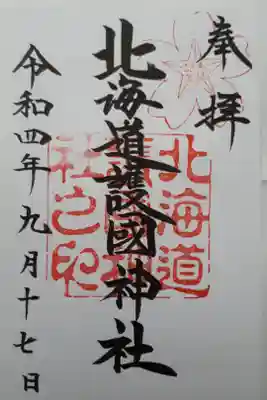 奉拝
北海道護國神社
北海道護國神社之印
令和四年九月十七日